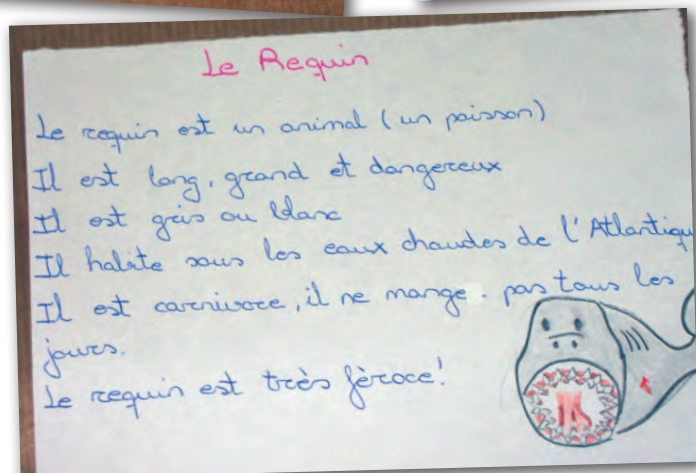 Le Requin
Le requin est un animal (un poisson)
Il est long, grand et dangereux
Il est gris ou blanc
Il habite sous les eaux chaudes de l'Atlantiqu
Il est carnivore, il ne mange pas tous les
jours.
Le requin est très fèroce!